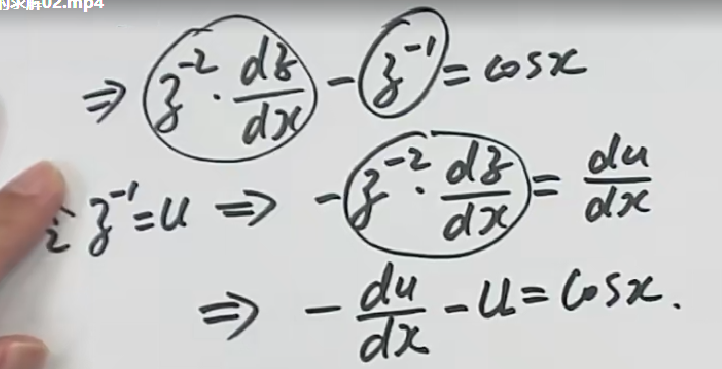 解02.mp4
⇒ z⁻² · dz/dx - z⁻¹ = cosx
z⁻¹ = u ⇒ -z⁻² · dz/dx = du/dx
⇒ -du/dx - u = cosx.